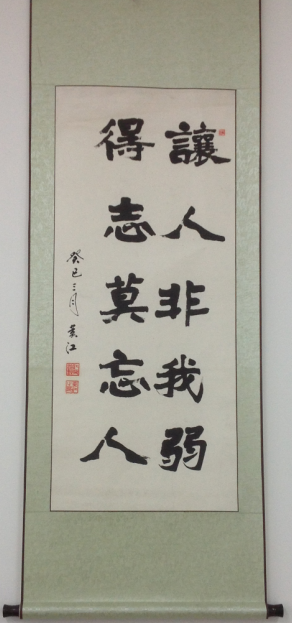 讓人非我弱
得志莫忘人
癸巳三月 黃江